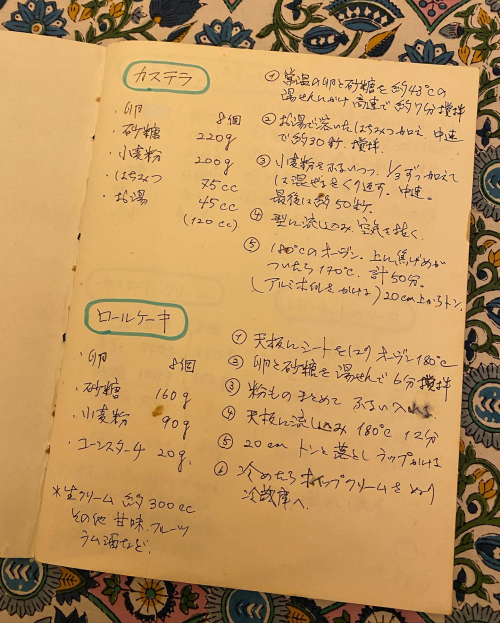 カステラ
・卵 8個
・砂糖 220g
・小麦粉 200g
・はちみつ 75cc
・お湯 45cc
(120cc)
① 常温の卵と砂糖を約43℃の
湯せんにかけ 高速で約7分撹拌
② お湯で溶いたはちみつ加え 中速
で約30秒 撹拌
③ 小麦粉をふるいつつ 1/3ずつ加えて
は混ぜをくり返す。中速。
最後は約50秒。
④ 型に流し込み 空気を抜く
⑤ 180℃のオーブン。上に焦げめが
ついたら170℃. 計50分。
(アルミホイルをかける) 20cm上からトン
ロールケーキ
・卵 8個
・砂糖 160g
・小麦粉 90g
・コーンスターチ 20g.
*生クリーム 約300cc
その他 甘味、フルーツ
ラム酒など.
① 天板にシートをはり オーブン180℃
② 卵と砂糖を湯せんで 6分撹拌
③ 粉ものまとめて ふるい入
④ 天板に流し込み 180℃ 12分
⑤ 20cm トンと落とし ラップかける
⑥ 冷めたらホイップクリームをぬり
冷蔵庫へ.